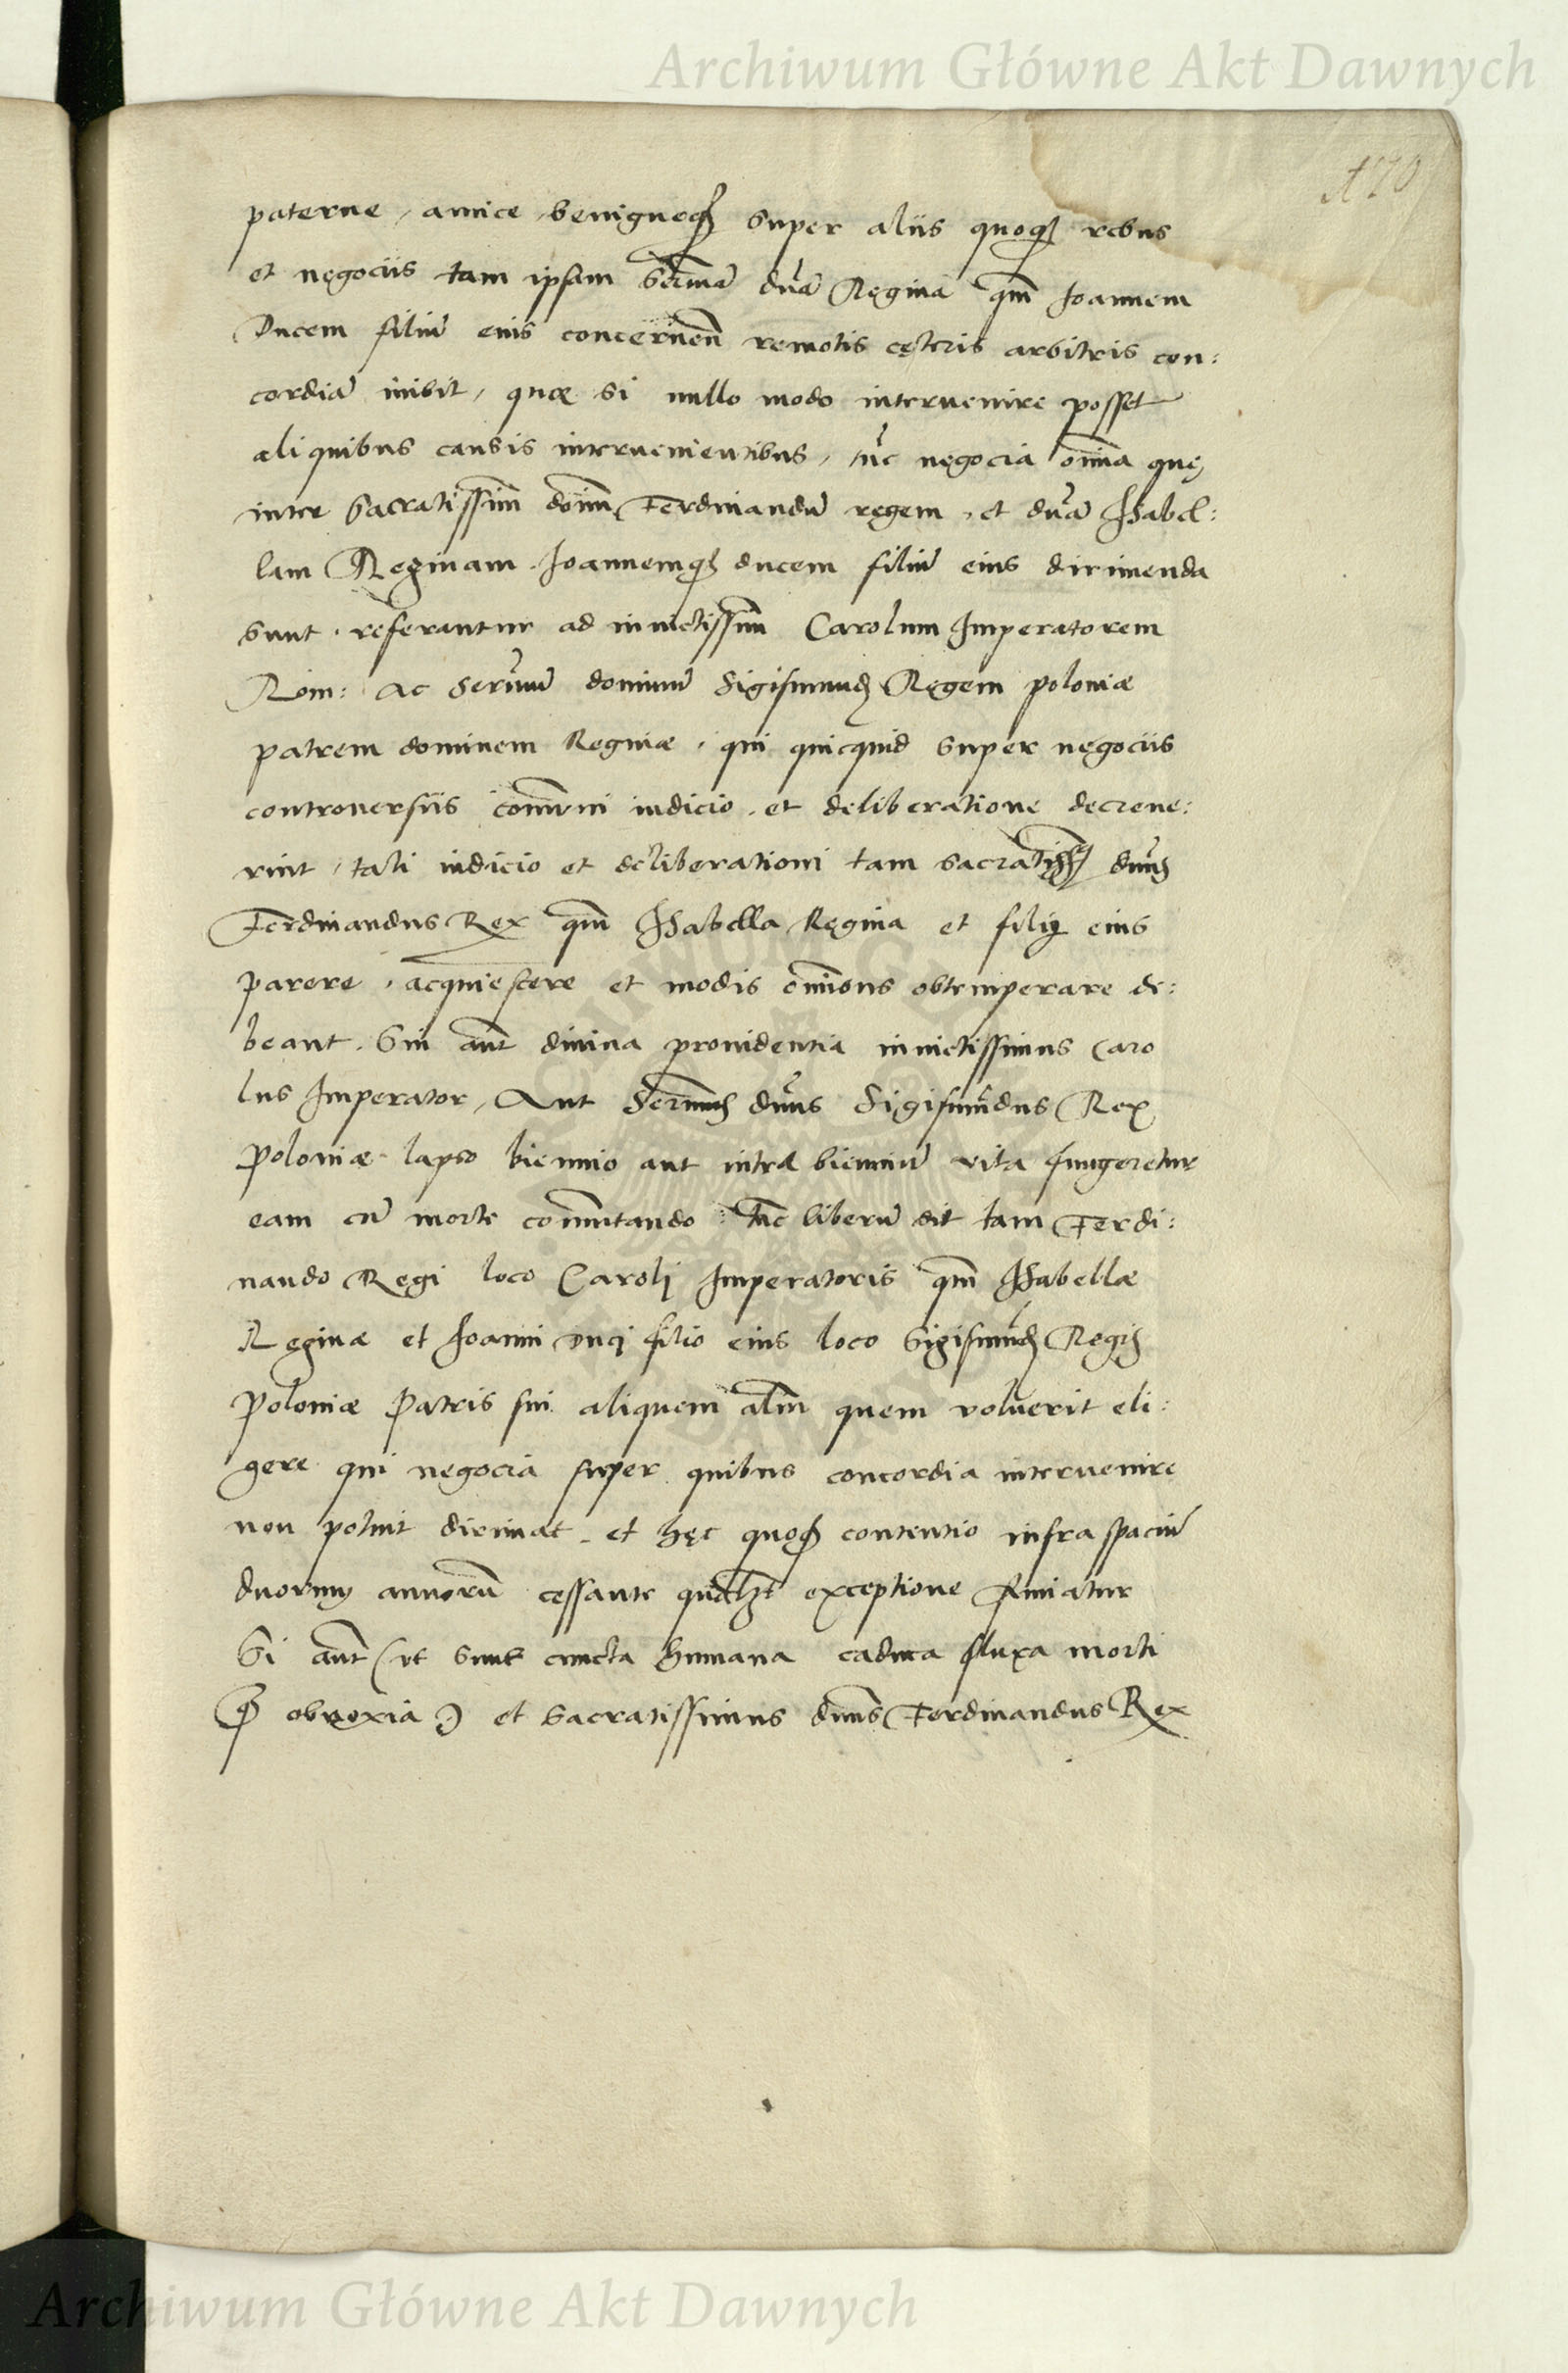 Archiwum Główne Akt Dawnych
470
paterne, amice, benigneq(ue) super aliis quoq(ue) rebus
et negociis tam ipsam Ser(enissi)mā d(omi)nā Reginā q(ua)m Joannem
Ducem filiū eius concernen̄ remotis cęteris arbitris con:
cordiā inibit, quæ si nullo modo intervenire posset
aliquibus causis intervenientibus, tūc negocia om̄ia quę
inter Sacratissim̄ dom̄ Ferdinandū regem, et dn̄ā Isabel:
lam Reginam Joannemq(ue) ducem filiū eius dirimenda
sunt, referantur ad invictissim̄ Carolum Imperatorem
Rom: ac Serm̄ū dominū Sigismund Regem poloniæ
patrem dominem Reginæ, qui quicquid super negociis
controversiis com̄uni iudicio, et deliberatione decreve:
rint, tali iudicio et deliberationi tam sacratiss dn̄us
Ferdinandus Rex qm̄ Isabella Regina et filiq eius
parere, acquiescere et modis om̄ibus obtemperare de:
beant. Sin aūt divina providentia invictissimus Caro
lus Imperator, Aut Serm̄us dn̄us Sigismūdus Rex
Poloniæ lapso biennio aut intra bienniū vita fungeretur
eam cū morte com̄utando: tūc liberū sit tam Ferdi:
nando Regi loco Caroli Imperatoris qm̄ Isabellæ
Reginæ et Joanni Duci filio eius loco Sigismūd Regis
Poloniæ Patris sui aliquem aliū quem voluerit eli:
gere qui negocia super quibus concordia intervenire
non potuit dirimat, et hęc quoq(ue) contentio infra spaciū
duorum annorū cessante qualibet exceptione finiatur
Si aūt (ut sunt cuncta humana caduca fluxa morti
q(ue) obnoxia) et Sacratissimus dn̄us Ferdinandus Rex
Archiwum Główne Akt Dawnych